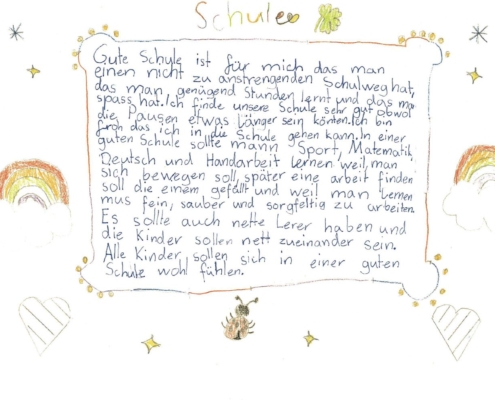 Schule
Gute Schule ist für mich das man
einen nicht zu anstrengenden Schulweg hat,
das man genügend Stunden lernt und das ma
spass hat. Ich finde unsere Schule sehr gut obwol
die Pausen etwas länger sein könten. Ich bin
froh das ich in die Schule gehen kann. In einer
guten Schule sollte mann Sport, Matematik
Deutsch und Handarbeit lernen weil man
sich bewegen soll, später eine arbeit finden
soll die einem gefällt und weil man lernen
mus fein, sauber und sorgfeltig zu arbeiten.
Es sollte auch nette Lerer haben und
die Kinder sollen nett zueinander sein.
Alle Kinder sollen sich in einer guten
Schule wohl fühlen.